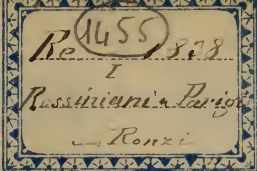 1455
Re 1838
I
Rossiniani a Parigi
Ronzi